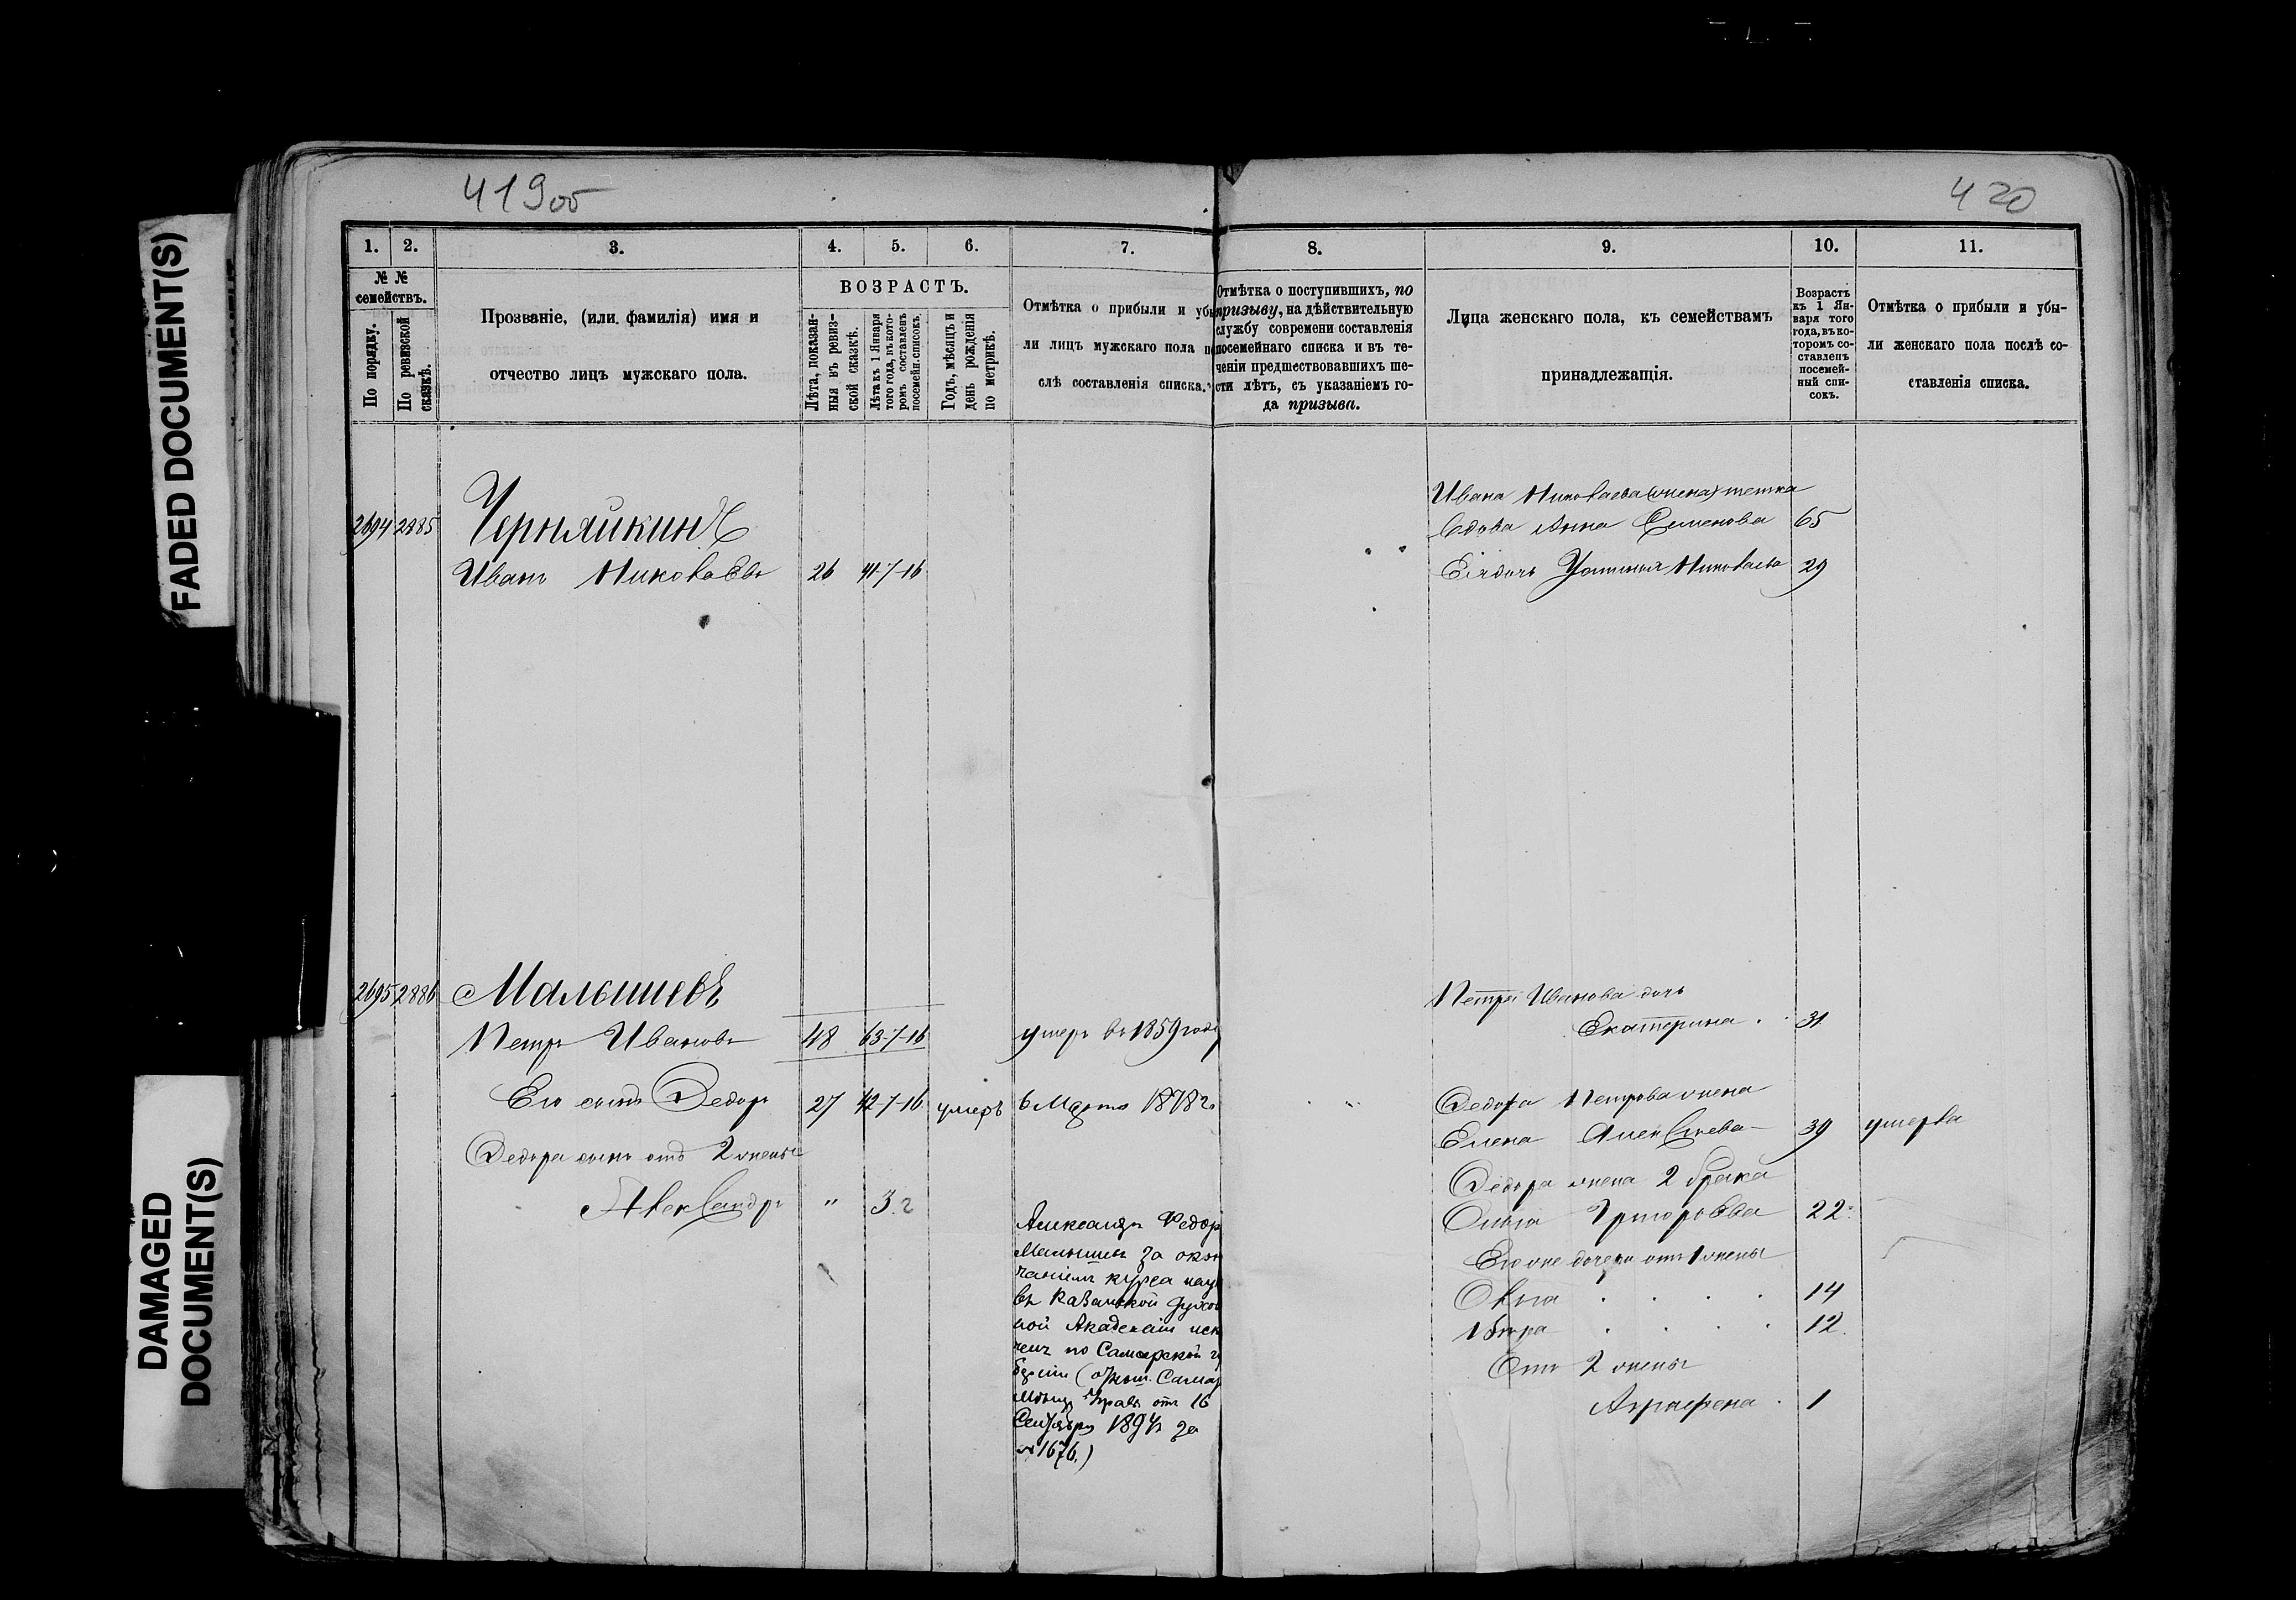 419об
420
FADED DOCUMENT(S)
DAMAGED DOCUMENT(S)
1.
2.
3.
4.
5.
6.
7.
8.
9.
10.
11.
№ №
семействъ.
По порядку.
По ревизской
сказкѣ.
Прозваніе, (или фамилія) имя и
отчество лицъ мужскаго пола.
ВОЗРАСТЪ.
Лѣта, показан-
ныя въ ревиз-
ской сказкѣ.
Лѣта къ 1 Января
того года, въ кото-
ромъ составленъ
посемейн. списокъ.
Годъ, мѣсяцъ и
день рожденія
по метрикѣ.
Отмѣтка о прибыли и убы
ли лицъ мужскаго пола по
слѣ составленія списка.
Отмѣтка о поступившихъ, по
призыву, на дѣйствительную
службу современи составленія
посемейнаго списка и въ те-
ченіи предшествовавшихъ ше-
сти лѣтъ, съ указаніемъ го-
да призыва.
Лица женскаго пола, къ семействамъ
принадлежащія.
Возрастъ
къ 1 Ян-
варя того
года, въ ко-
торомъ со-
ставленъ
посемей-
ный спи-
сокъ.
Отмѣтка о прибыли и убы-
ли женскаго пола послѣ со-
ставленія списка.
2694 2885 Черняйкинъ
Иванъ Николаевъ 26 41-7-16
Ивана Николаева жена тетка
вдова Анна Семенова 65
Ея дочь Устинья Николаева 29
2695 2886 Малышевъ
Петръ Ивановъ 48 63-7-16 умеръ въ 1859 году
Его сынъ Федоръ 27 42-7-16 умеръ 6 Марта 1878 г.
Федора сынъ отъ 2 жены
Александръ " 3 г
Александръ Федор
Малышевъ за окон
чаніемъ курса наук
въ Казанской Духов
ной Академіи искл
ченъ по Самарской гу
берніи (отнош. Самар
Мѣщ. Управ. отъ 16
Сентября 1894 г. за
№ 1676.)
Петра Иванова дочь
Екатерина 31
Федора Петрова жена
Елена Алексѣева 39 умерла
Федора жена 2 брака
Ольга Григорьева 22
Его же дочери отъ 1 жены
Ольга 14
Вѣра 12
Отъ 2 жены
Аграфена 1